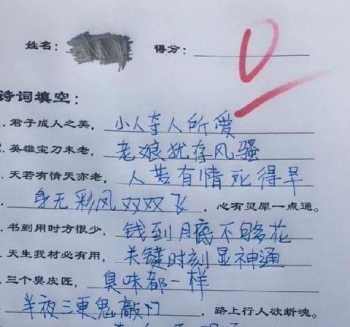 姓名: 得分: 0
诗词填空:
君子成人之美, 小人夺人所爱
英雄宝刀未老, 老娘犹存风骚
天若有情天亦老, 人若有情死得早
身无彩凤双双飞, 心有灵犀一点通。
书到用时方恨少, 钱到月底不够花
天生我材必有用, 关键时刻显神通
三个臭皮匠, 臭味都一样
半夜三更鬼敲门, 路上行人欲断魂。